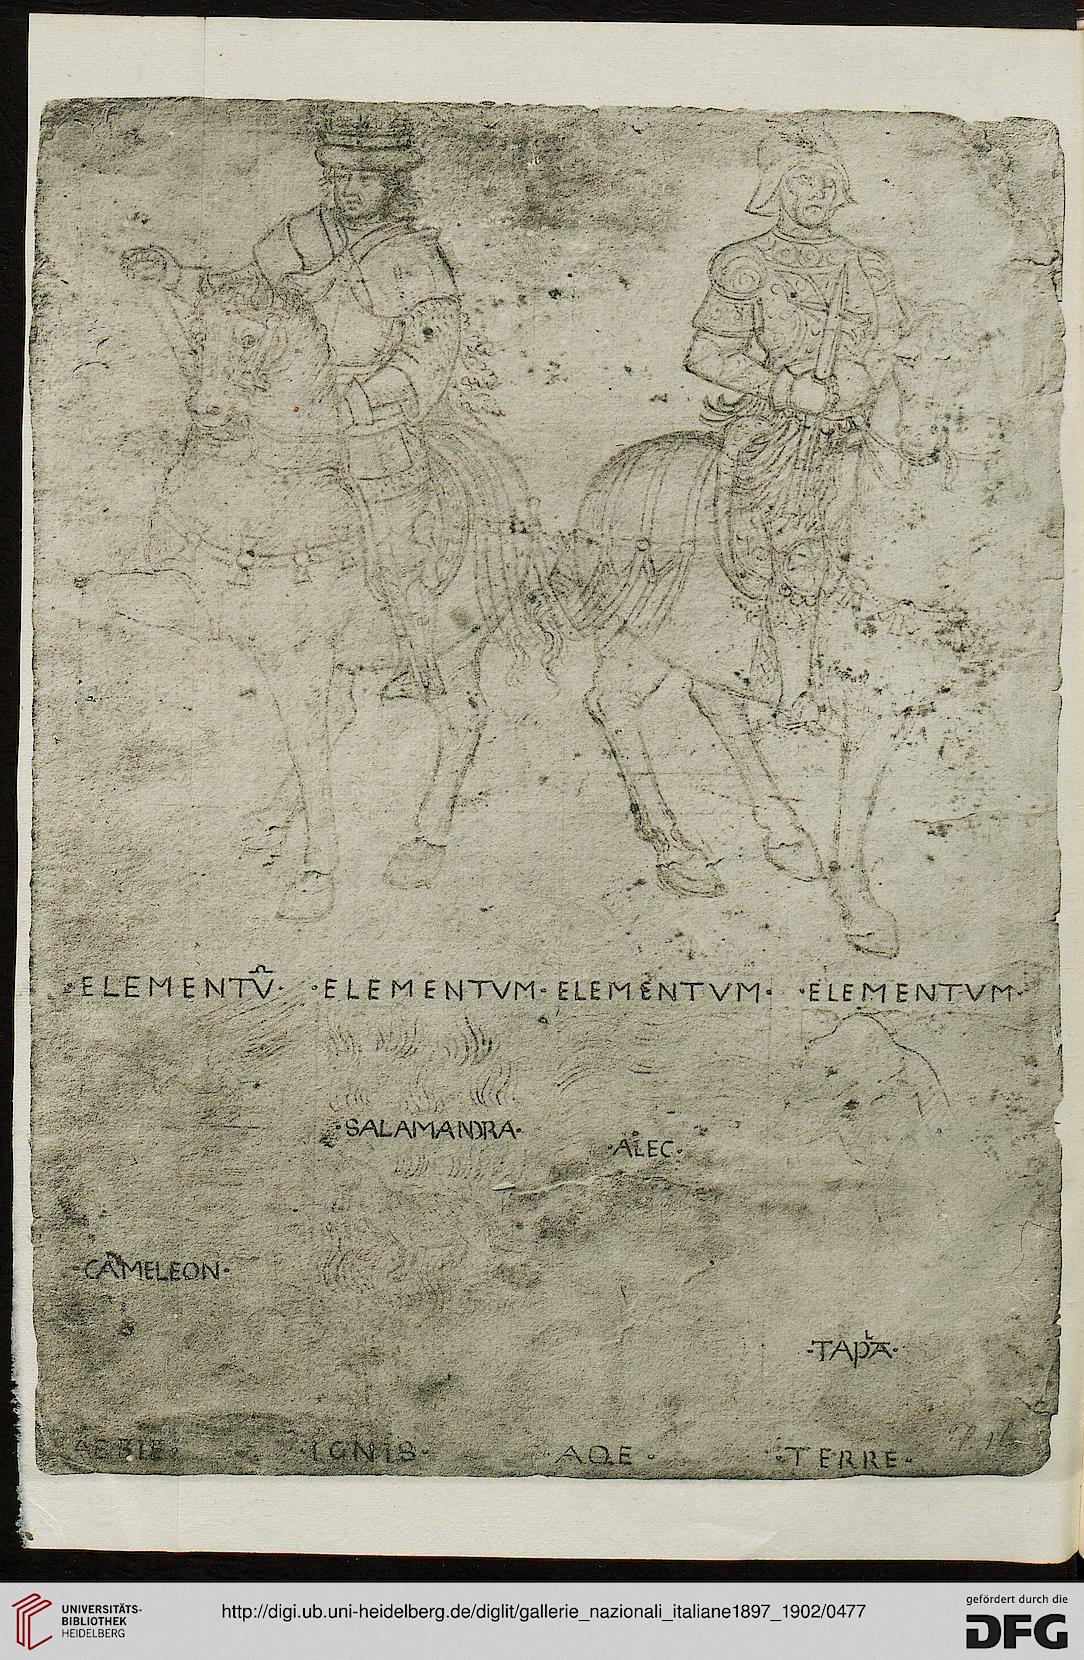 ·ELEMENTŪ· ·ELEMENTVM· ELEMENTVM· ·ELEMENTVM·
·SALAMANDRA·
·ALEC·
·CAMELEON·
·TAPᴸA·
AERIE· ·IGNIS· AQE· ·TERRE·
UNIVERSITÄTS-
BIBLIOTHEK
HEIDELBERG
http://digi.ub.uni-heidelberg.de/diglit/gallerie_nazionali_italiane1897_1902/0477
gefördert durch die
DFG